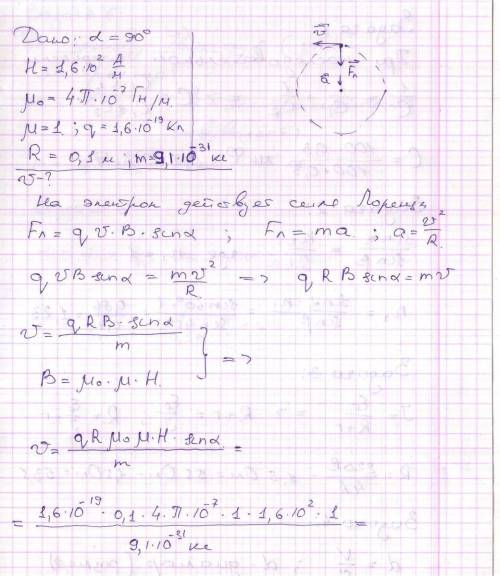 Дано: α = 90°
H = 1,6·10² А/м
μ₀ = 4π·10⁻⁷ Гн/м.
μ = 1 ; q = 1,6·10⁻¹⁹ Кл
R = 0,1 м ; m = 9,1·10⁻³¹ кг
v - ?
v⃗
F⃗л
a⃗
На электрон действует сила Лоренца
Fл = q v · B · sinα ; Fл = ma ; a = v²/R.
q v B sinα = mv²/R => q R B sinα = mv
v = q R B · sinα / m
B = μ₀ · μ · H. } =>
v = q R μ₀ μ · H · sinα / m =
= 1,6·10⁻¹⁹ · 0,1 · 4 · π · 10⁻⁷ · 1 · 1,6·10² · 1 / 9,1·10⁻³¹ кг =